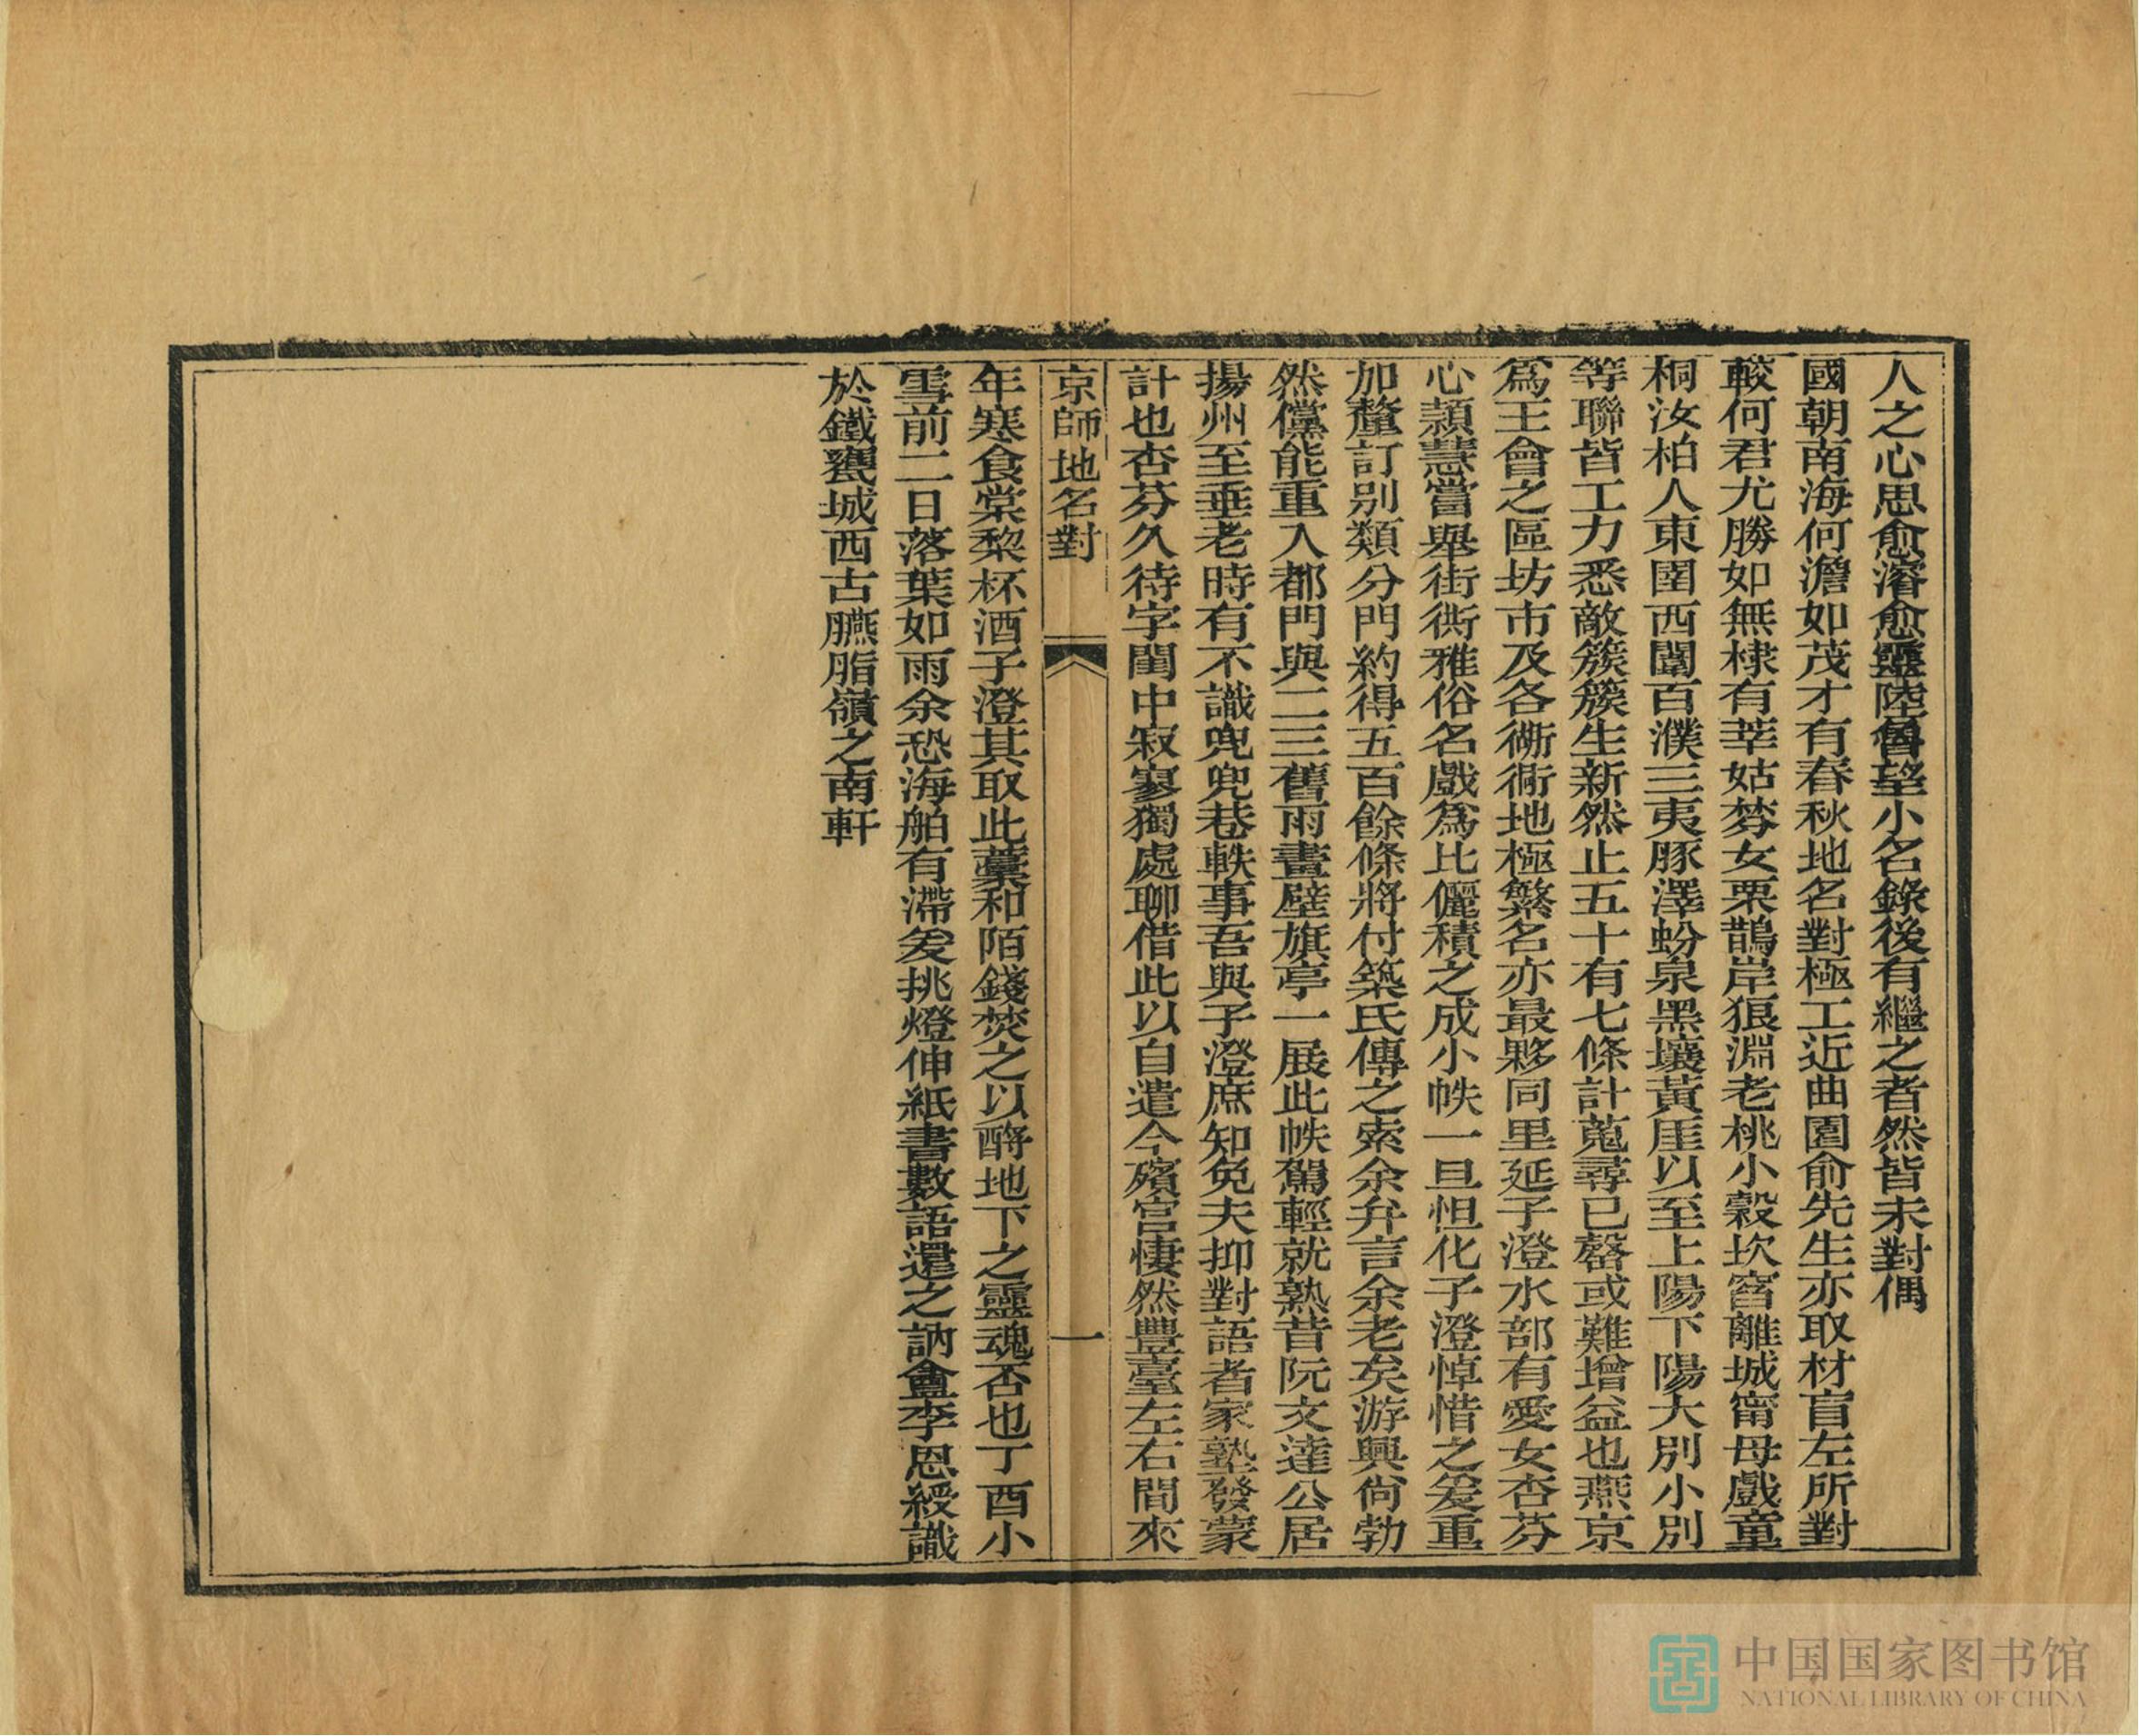 人之心思愈濬愈靈陸魯望小名錄後有繼之者然皆未對偶
國朝南海何澹如茂才有春秋地名對極工近曲園俞先生亦取材盲左所對
較何君尤勝如無棣有莘姑棼女栗鵲岸狼淵老桃小穀坎窞離城甯母戲童
桐汝柏人東圉西闈百濮三夷豚澤蚡泉黑壤黃厓以至上陽下陽大別小別
等聯皆工力悉敵簇簇生新然止五十有七條計蒐尋已罄或難增益也燕京
為王會之區坊市及各衚衕地極繁名亦最夥同里延子澄水部有愛女杏芬
心頴慧當舉街衖雅俗名戲爲比儷積之成小帙一旦怛化子澄悼惜之爰重
加釐訂別類分門約得五百餘條將付築氏傳之索余弁言余老矣游興尙勃
然儻能重入都門與二三舊雨畫壁旗亭一展此帙駕輕就熟昔阮文達公居
揚州至垂老時有不識兜兜巷軼事吾與子澄庶知免夫抑對語者家塾發蒙
計也杏芬久待字閨中寂寥獨處聊借此以自遣今殯宮悽然豐臺左右間來
京師地名對
一
年寒食棠棃杯酒子澄其取此藁和陌錢焚之以酹地下之靈魂否也丁酉小
雪前二日落葉如雨余恐海舶有滯爰挑燈伸紙書數語還之訥盦李恩綬識
於鐵甕城西古臙脂嶺之南軒
中国国家图书馆
NATIONAL LIBRARY OF CHINA